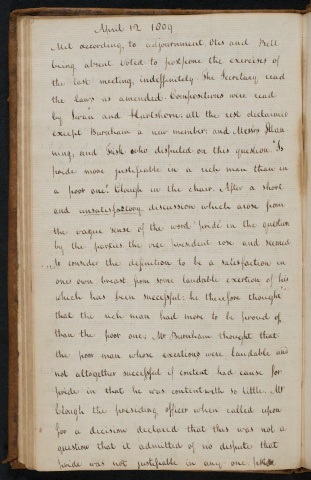 April 12 1809
Met according to adjournment, Otis and Bell
being absent Voted to postpone the exercises of
the last meeting, indefinitely. The Secretary read
the laws as amended. Compositions were read
by Swan and Hartshorn: all the rest declaimed
except Burnham a new member; and Messrs
ning, and Fisk who disputed on this question "Is
pride more justifiable in a rich man than in
a poor one". Clough in the chair. After a short
and unsatisfactory discussion which arose from
the vague sense of the word 'pride' in the question
by the parties. the vice president rose and seemed
to consider the definition to be a satisfaction in
ones own breast from some laudable exertion of his
which has been successful; he therefore thought
that the rich man had more to be proud of
than the poor one. Mr Burnham thought that
the poor man whose exertions were laudable and
not altogether successful if content had cause for
pride in that he was content with so little. Mr
Clough the presiding officer when called upon
for a decision declared that this was not a
question that it admitted of no dispute that
pride was not justifiable in any one.